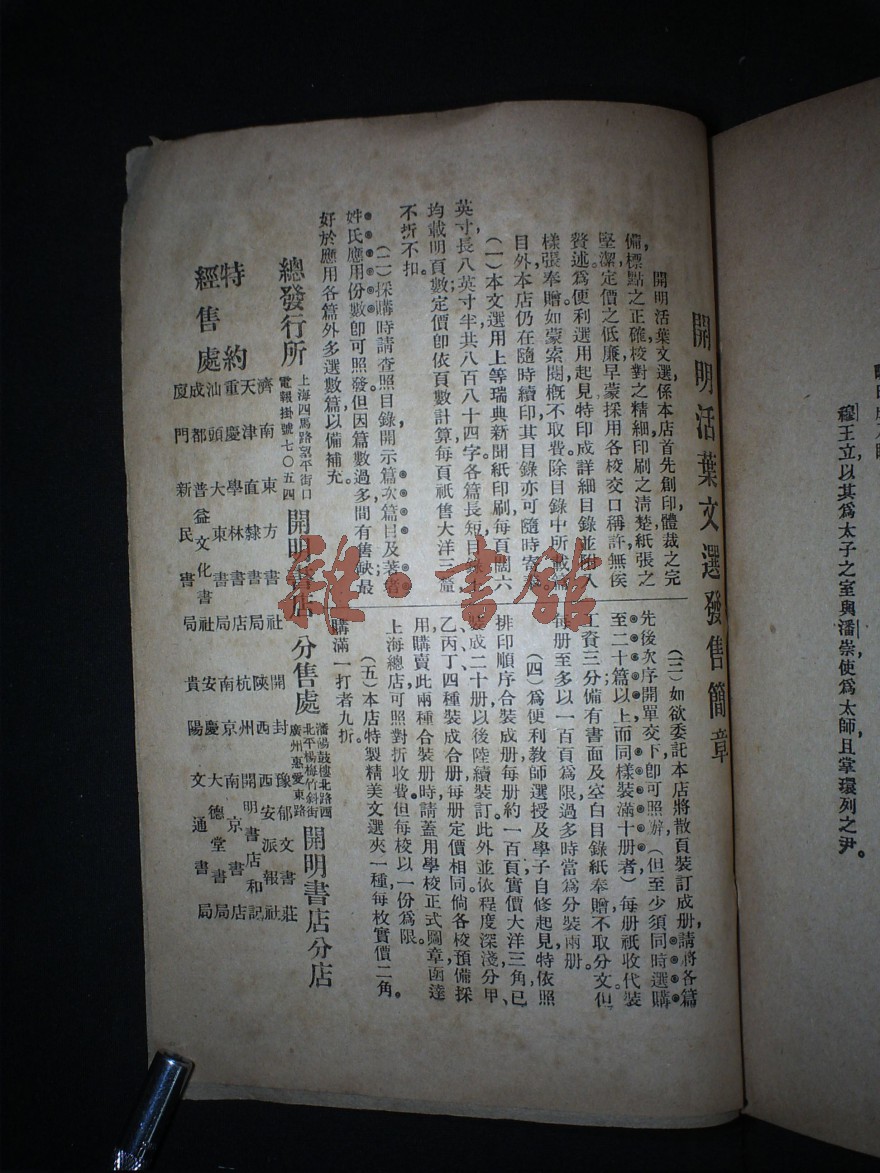 穆王立以其爲太子之室與潘崇使爲太師且掌環列之尹。
開明活葉文選發售簡章
開明活葉文選係本店首先創印體裁之完
備,標點之正確校對之精細印刷之淸楚紙張之
堅潔定價之低廉早蒙採用各校交口稱許無俟
贅述爲便利選用起見特印成詳細目錄並附入
樣張奉贈如蒙索閱槪不取費除目錄中所載篇
目外本店仍在隨時續印其目錄亦可隨時寄
(一)本文選用上等瑞典新聞紙印刷,每頁闊六
英寸,長八英寸半共八百八十四字各篇長短目錄
均載明頁數定價卽依頁數計算每頁祇售大洋三釐
不折不扣。
(二)採購時請查照目錄開示篇次篇目及著者
姓氏應用份數卽可照發但因篇數過多間有售缺最
好於應用各篇外多選數篇以備補充。
(三)如欲委託本店將散頁裝訂成册,請將各篇
先後次序開單交下卽可照辦(但至少須同時選購
至二十篇以上而同樣裝滿十册者)每册祇收代裝
工資三分備有書面及空白目錄紙奉贈不取分文但
每册至多以一百頁爲限過多時當爲分裝兩册。
(四)爲便利教師選授及學子自修起見,特依照
排印順序合裝成册每册約一百頁實價大洋三角已
裝成二十册以後陸續裝訂此外並依程度深淺分甲、
乙、丙、丁四種裝成合册每册定價相同倘各校預備採
用購賣此兩種合裝册時請蓋用學校正式圖章函達
上海總店可照對折收費但每校以一份爲限。
(五)本店特製精美文選夾一種每枚實價二角。
購滿一打者九折。
總發行所
上海四馬路望平街口
電報掛號七〇五四
開明書店
分售處
瀋陽鼓樓北路西
北平楊梅竹斜街
廣州惠愛東路
開明書店分店
特約
經售處
濟南 東方書社
天津 直隸書局
重慶 學林書店
汕頭 大東書局
成都 普益文化書社
廈門 新民書局
開封 豫郁文書莊
陝西 西安派報社
杭州 開明書店和記
南京 南京書店
安慶 大德堂書局
貴陽 文通書局
雜·書館